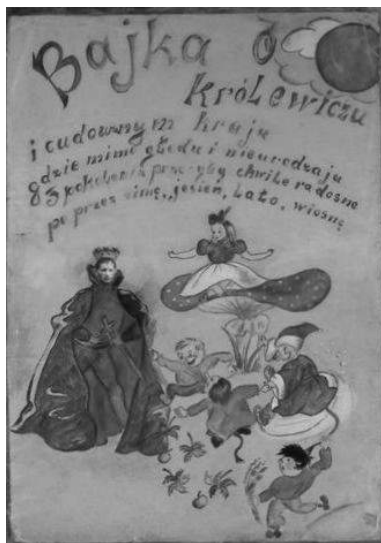 Bajka o
królewiczu
i cudownym kraju
gdzie mimo głodu i nieurodzaju
3 pokolenia przeżyły chwile radosne
po przez zimę, jesień, lato, wiosnę